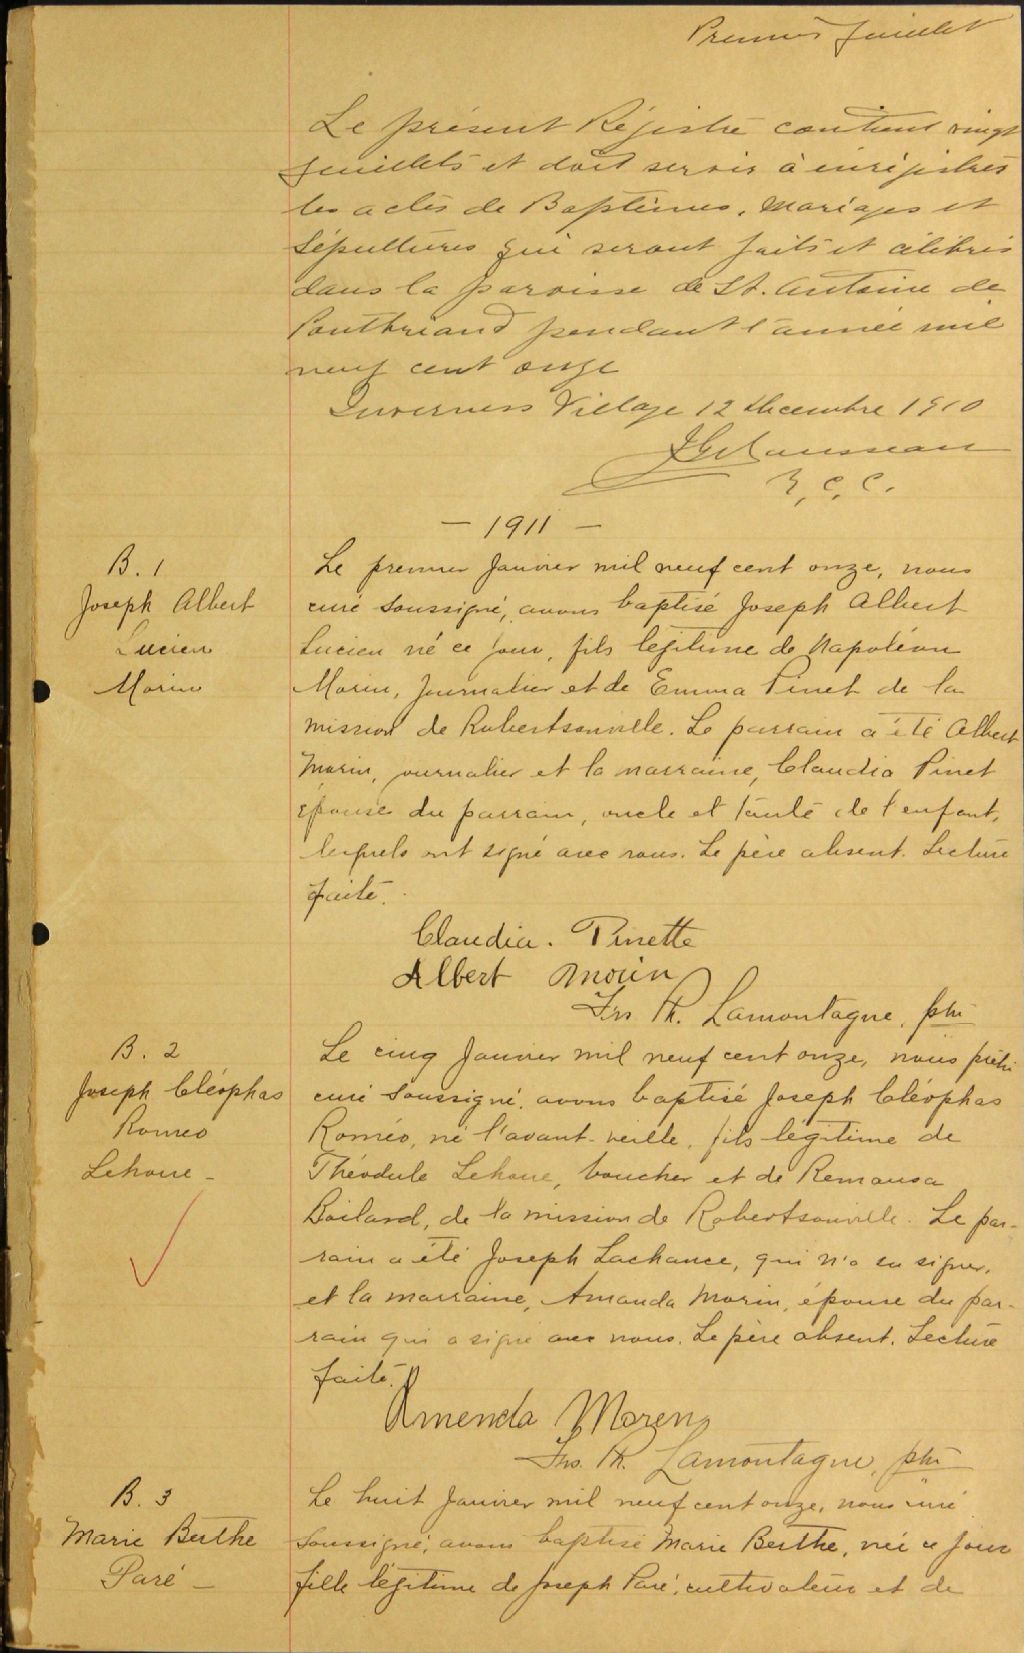 Premier feuillet
Le présent Régistre contient vingt
feuillets et doit servir à enrégistrer
les actes de Baptêmes, Mariages et
Sépultures qui seront faits et célébrés
dans la paroisse de St. Antoine de
Pontbriand pendant l'année mil
neuf cent onze
Inverness Village 12 décembre 1910
Rousseau
C. C.
- 1911 -
B. 1
Joseph Albert
Lucien
Morin
Le premier Janvier mil neuf cent onze, nous
curé soussigné, avons baptisé Joseph Albert
Lucien né ce jour, fils légitime de Napoléon
Morin, journalier et de Emma Pinet de la
mission de Robertsonville. Le parrain a été Albert
Morin, journalier et la marraine, Claudia Pinet
épouse du parrain, oncle et tante de l'enfant,
lesquels ont signé avec nous. Le père absent. Lecture
faite.
Claudia. Pinette
Albert Morin
Frs. Th. Lamontagne, ptre
B. 2
Joseph Cléophas
Romeo
Lehoue -
Le cinq Janvier mil neuf cent onze, nous prêtre
curé soussigné, avons baptisé Joseph Cléophas
Roméo, né l'avant-veille, fils légitime de
Théodule Lehoue, boucher et de Remausa
Boilard, de la mission de Robertsonville. Le par-
rain a été Joseph Lachance, qui n'a su signer,
et la marraine, Amanda Morin, épouse du par-
rain qui a signé avec nous. Le père absent. Lecture
faite.
Amenda Moren
Frs. Th. Lamontagne, ptre
B. 3
Marie Berthe
Paré -
Le huit Janvier mil neuf cent onze, nous curé
soussigné, avons baptisé Marie Berthe, née ce jour
fille légitime de Joseph Paré, cultivateur et de